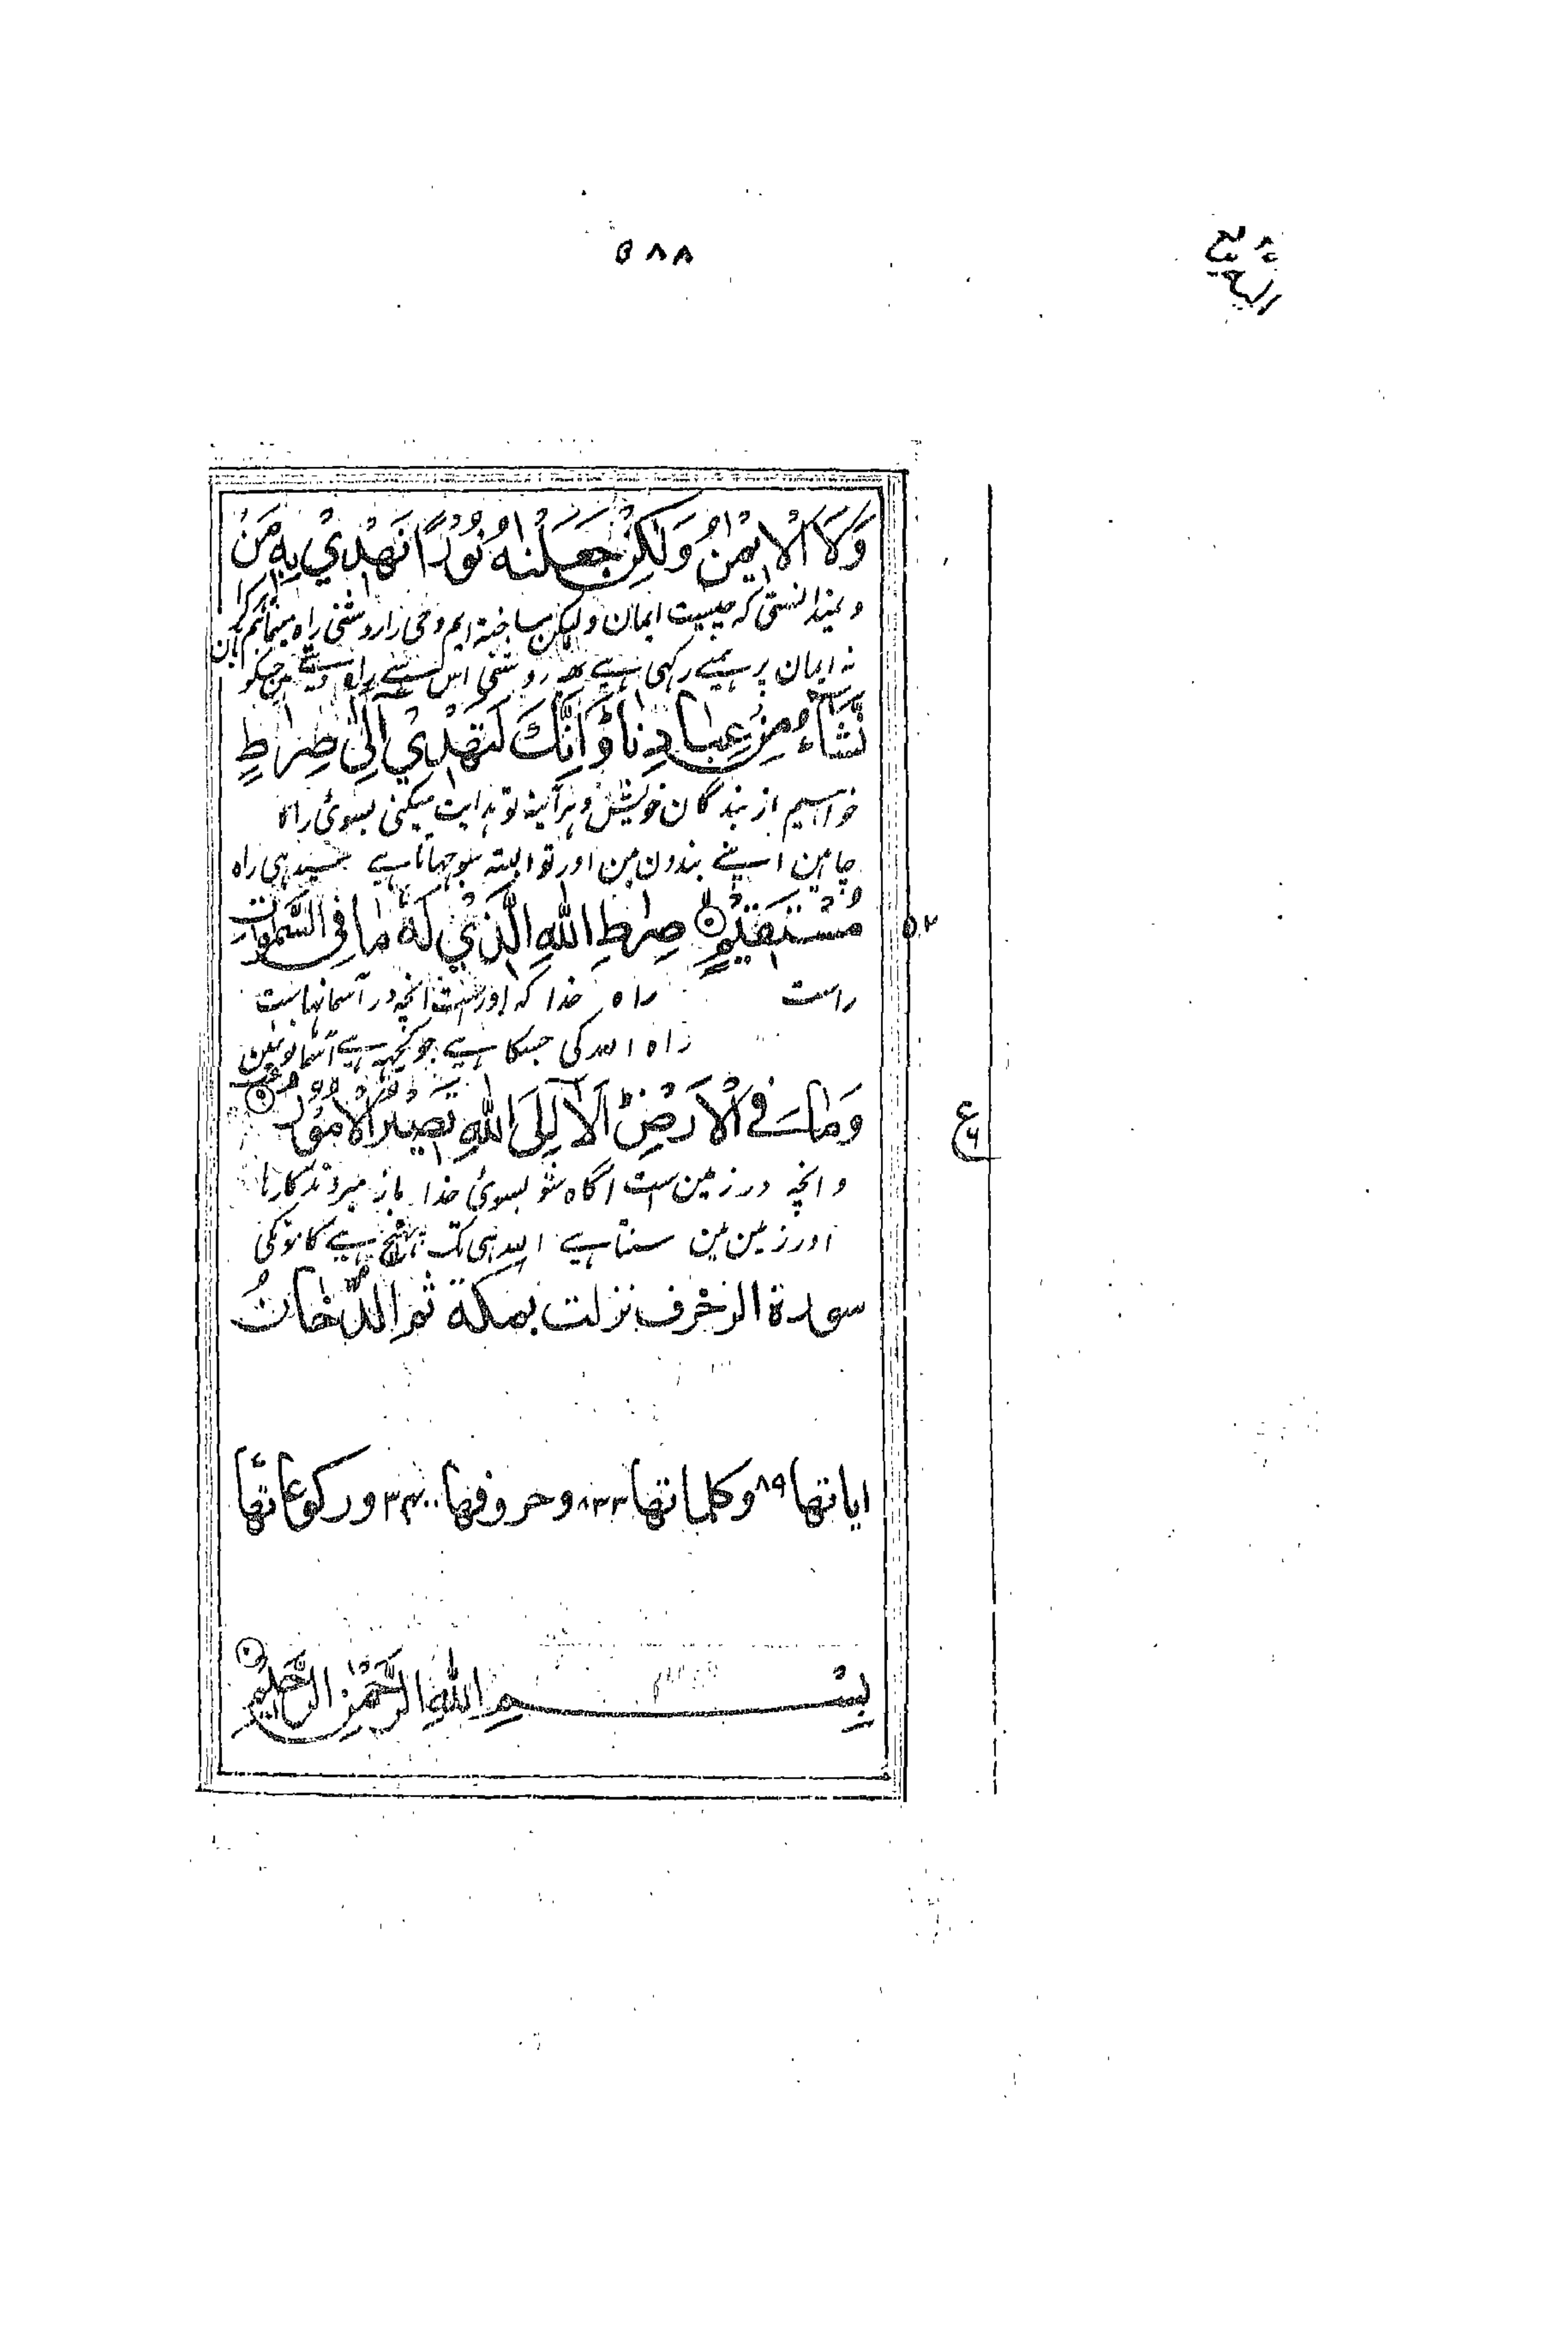 ۵۸۸
وَلَا الْاِيْمٰنُ وَلٰكِنْ جَعَلْنٰهُ نُوْرًا نَّهْدِيْ بِهٖ مَنْ
و نمیدانستی که چیست ایمان ولیکن ساخته ایم وحی را روشنی راه مینمائیم بآن هرکرا
نہ ایمان پر ہمنے رکھی ہے یہ روشنی اس سے راہ دیتے ہین جسکو
نَّشَآءُ مِنْ عِبَادِنَا ؕ وَاِنَّكَ لَتَهْدِيْٓ اِلٰى صِرَاطٍ
خواہیم از بندگان خویش و ہرآینہ تو ہدایت میکنی بسوئ راہ
چاہین اپنے بندون مین اور تو البتہ سوجہاتا ہے سیدہی راہ
مُّسْتَقِيْمٍ صِرَاطِ اللّٰهِ الَّذِيْ لَهٗ مَا فِى السَّمٰوٰتِ
۵۲
راست راہ خدا کہ اوراست انچہ در آسمانہاست
راہ اللہ کی جسکا ہے جو کچہہ ہے آسمانونمین
وَمَا فِى الْاَرْضِ ؕ اَلَآ اِلَى اللّٰهِ تَصِيْرُ الْاُمُوْرُ
ع
و انچہ در زمین ست آگاہ شو بسوئ خدا باز میروند کارہا
اور زمین مین سنتا ہے اللہ ہی تک پہنچ ہے کامونکی
سورة الزخرف نزلت بمكة ثم الدُّخَانُ
اياتها ۸۹ وكلماتها ۸۳۳ وحروفها ۳۴۰۰ وركوعاتها
بِسْمِ اللّٰهِ الرَّحْمٰنِ الرَّحِيْمِ